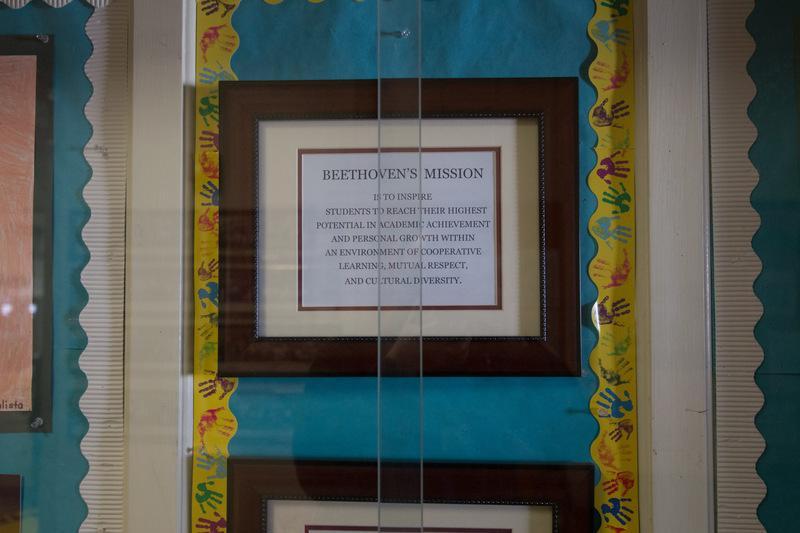 BEETHOVEN'S MISSION
IS TO INSPIRE
STUDENTS TO REACH THEIR HIGHEST
POTENTIAL IN ACADEMIC ACHIEVEMENT
AND PERSONAL GROWTH WITHIN
AN ENVIRONMENT OF COOPERATIVE
LEARNING, MUTUAL RESPECT,
AND CULTURAL DIVERSITY.